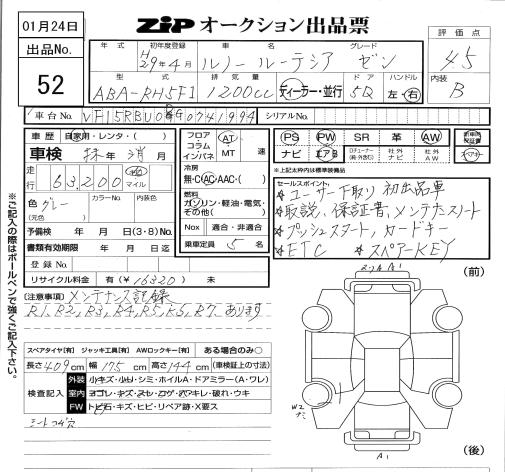 01月24日
ZIP オークション出品票
出品No.
52
年式
初年度登録
車名
グレード
評価点
H29年4月
ルノー ルーテシア ゼン
4.5
型式
排気量
ドア
ハンドル
内装
ABA-RH5F1
1200cc
ディーラー・並行
5D
左・右
B
車台No.
VF15RBU0
G0741994
シリアルNo.
車歴
自家用・レンタ・( )
車検
抹消 月
走行
63,200
km
マイル
色
グレー
カラーNo.
内装色
(元色)
予備検 年 月 日(3・8)No.
書類有効期限 年 月 日迄
登録No.
リサイクル料金 有(¥16320) 未
フロア
コラム
インパネ
AT
MT
速
冷房
無・C(AC・AAC・( )
燃料
ガソリン・軽油・電気・
その他( )
Nox
適合・非適合
乗車定員 5 名
PS PW SR 革 AW
ナビ エアB
Dチューナー
社外ナビ
社外AW
新車時保証書
スペアキー
※上記太枠内は標準装備品
セールスポイント
★ユーザー下取り 初出品車
★取説、保証書、メンテナンスノート
★プッシュスタート、カードキー
★ETC ★スペアーKEY
(注意事項)
メンテナンス記録
R1、R2、R3、R4、R5、R6、R7 あります
スペアタイヤ[有] ジャッキ工具[有] AWロックキー[有] ある場合のみ○
長さ 409 cm 幅 175 cm 高さ 144 cm (車検証上の寸法)
検査記入
外装 小キズ・小凹・シミ・ホイルA・ドアミラー(A・ワレ)
室内 ヨゴレ・キズ・スレ・コゲ・パアキレ・破れ・ウキ
FW トビ石・キズ・ヒビ・リペア跡・X要ス
シートコゲ穴
(前)
A1
W2
A1
(後)
※ご記入の際はボールペンで強くご記入下さい。